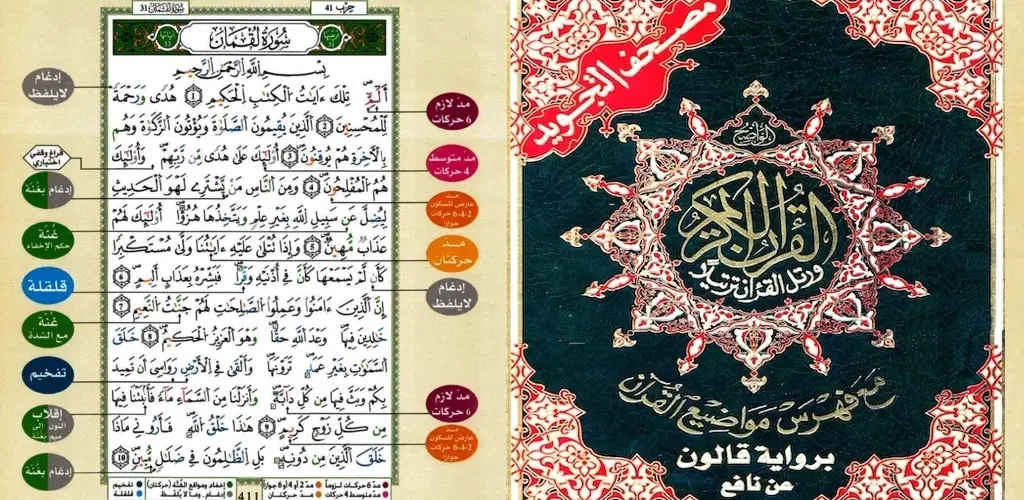 31 سُورَةُ لُقْمَان
حِزْب 41
سُورَةُ لُقْمَان
بِسْمِ اللَّهِ الرَّحْمَٰنِ الرَّحِيمِ
أَلَٓمِّٓ تِلْكَ ءَايَٰتُ الْكِتَٰبِ الْحَكِيمِ 1 هُدًى وَرَحْمَةً
لِّلْمُحْسِنِينَ 2 الَّذِينَ يُقِيمُونَ الصَّلَوٰةَ وَيُؤْتُونَ الزَّكَوٰةَ وَهُم
بِالْأَخِرَةِ هُمْ يُوقِنُونَ 3 أُوْلَٰٓئِكَ عَلَىٰ هُدًى مِّن رَّبِّهِمْ وَأُوْلَٰٓئِكَ
هُمُ الْمُفْلِحُونَ 4 وَمِنَ النَّاسِ مَنْ يَّشْتَرِي لَهْوَ الْحَدِيثِ
لِيُضِلَّ عَن سَبِيلِ اللَّهِ بِغَيْرِ عِلْمٍ وَيَتَّخِذُهَا هُزُؤًا أُوْلَٰٓئِكَ لَهُمْ
عَذَابٌ مُّهِينٌ 5 وَإِذَا تُتْلَىٰ عَلَيْهِ ءَايَٰتُنَا وَلَّىٰ مُسْتَكْبِرًا
كَأَن لَّمْ يَسْمَعْهَا كَأَنَّ فِي أُذْنَيْهِ وَقْرًا فَبَشِّرْهُ بِعَذَابٍ أَلِيمٍ 6
إِنَّ الَّذِينَ ءَامَنُوا وَعَمِلُوا الصَّٰلِحَٰتِ لَهُمْ جَنَّٰتُ النَّعِيمِ 7
خَٰلِدِينَ فِيهَا وَعْدَ اللَّهِ حَقًّا وَهُوَ الْعَزِيزُ الْحَكِيمُ 8 خَلَقَ
السَّمَٰوَٰتِ بِغَيْرِ عَمَدٍ تَرَوْنَهَا وَأَلْقَىٰ فِي الْأَرْضِ رَوَٰسِيَ أَن تَمِيدَ
بِكُمْ وَبَثَّ فِيهَا مِن كُلِّ دَآبَّةٍ وَأَنزَلْنَا مِنَ السَّمَآءِ مَآءً فَأَنۢبَتْنَا فِيهَا
مِن كُلِّ زَوْجٍ كَرِيمٍ 9 هَٰذَا خَلْقُ اللَّهِ فَأَرُونِي مَاذَا
خَلَقَ الَّذِينَ مِن دُونِهِ بَلِ الظَّٰلِمُونَ فِي ضَلَٰلٍ مُّبِينٍ 10
إدغام
لا يلفظ
فراغ وقفي
اختياري
إدغام بغُنّة
غُنّة
حكم الإخفاء
قلقلة
غُنّة
مع الشدة
تفخيم
إقلاب
النون إلى
ميم بغُنّة
إدغام بغُنّة
مدّ لازم
6 حركات
مدّ متوسط
4 حركات
مدّ
عارض للسكون
2-4-6 حركات
جوازاً
مدّ
حركتان
إدغام
لا يلفظ
مدّ لازم
6 حركات
مدّ
عارض للسكون
2-4-6
جوازاً
مدّ 6 حركات لزوماً
مدّ 2 أو 4 أو 6 جوازاً
إخفاء، ومواقع الغُنّة (حركتان)
تفخيم
مدّ متوسط 4 حركات
مدّ حركتان
إدغام، وما لا يُلفظ
قلقلة
411
مصحف التجويد
الواضح
القرآن الكريم
ورتل القرءان ترتيلا
مع فهرس مواضيع القرآن
برواية قالون
عن نافع